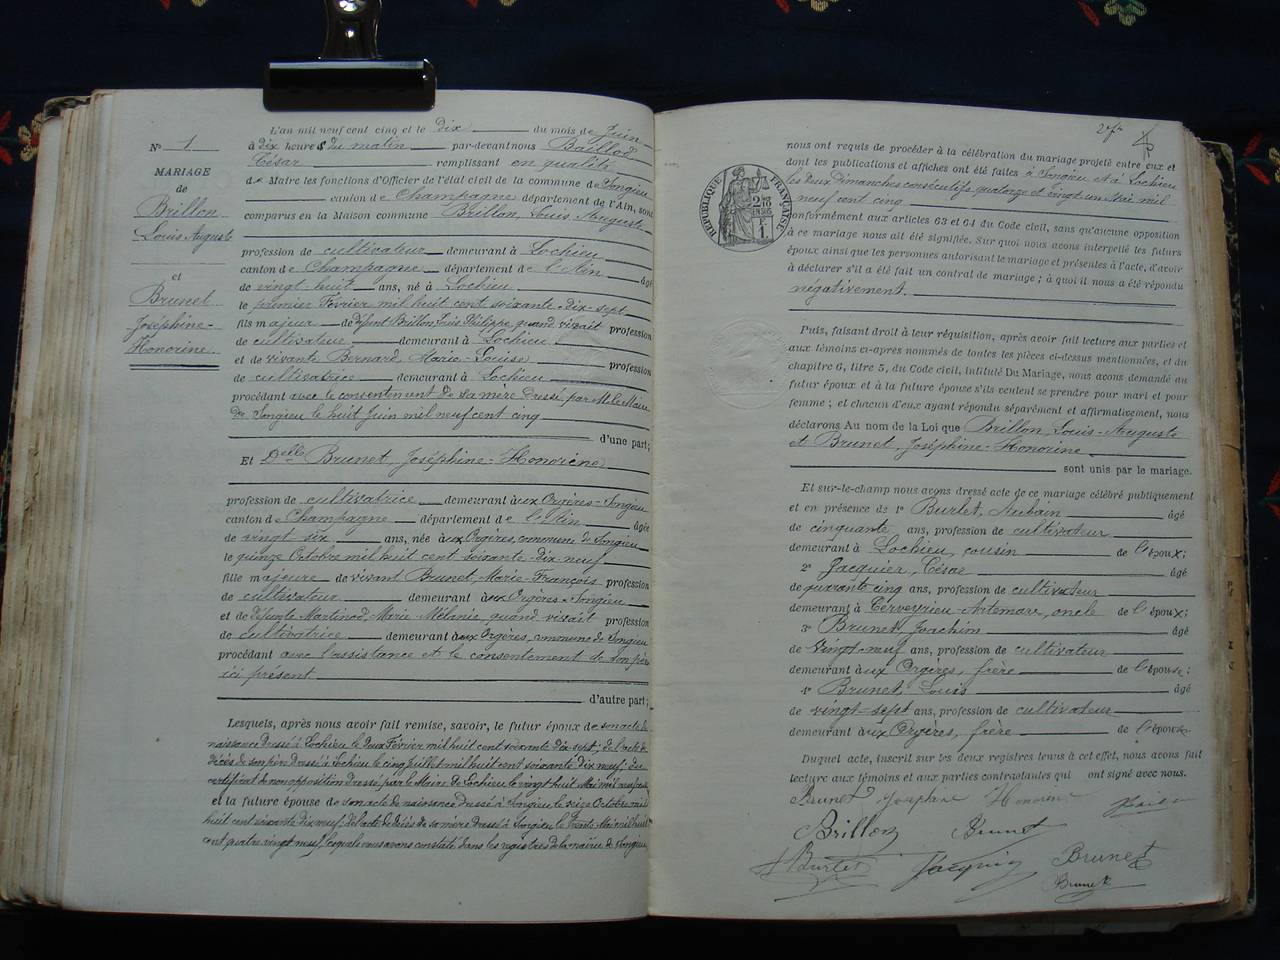 N° 1
MARIAGE
de
Brillon
Louis Auguste
et
Brunet
Joséphine-
Honorine
L'an mil neuf cent cinq et le dix du mois de Juin
à dix heures du matin par-devant nous Baillod
César remplissant en qualité
de Maire les fonctions d'Officier de l'état civil de la commune de Songieu
canton de Champagne département de l'Ain, sont
comparus en la Maison commune Brillon, Louis Auguste
profession de cultivateur demeurant à Lochieu
canton de Champagne département de l'Ain âgé
de vingt-huit ans, né à Lochieu
le premier Février mil huit cent soixante-dix-sept
fils majeur de défunt Brillon, Louis Philippe, quand vivait profession
de cultivateur demeurant à Lochieu
et de vivante Bernard, Marie-Louise profession
de cultivatrice demeurant à Lochieu
procédant avec le consentement de sa mère dressé par M. le Maire
de Songieu le huit Juin mil neuf cent cinq
d'une part;
Et Delle Brunet, Joséphine-Honorine
profession de cultivatrice demeurant aux Orgères-Songieu
canton de Champagne département de l'Ain âgée
de vingt six ans, née aux Orgères, commune de Songieu
le quinze Octobre mil huit cent soixante-dix-neuf
fille majeure de vivant Brunet, Marie-François profession
de cultivateur demeurant aux Orgères-Songieu
et de défunte Martinod, Marie Mélanie, quand vivait profession
de cultivatrice demeurant aux Orgères, commune de Songieu
procédant avec l'assistance et le consentement de son père
ici présent
d'autre part;
Lesquels, après nous avoir fait remise, savoir, le futur époux de son acte de
naissance dressé à Lochieu le deux Février mil huit cent soixante dix-sept; de l'acte de
décès de son père dressé à Lochieu le cinq Juillet mil huit cent soixante dix neuf; du
certificat de non opposition dressé par le Maire de Lochieu le vingt huit Mai mil neuf cent cinq
et la future épouse de son acte de naissance dressé à Songieu le seize Octobre mil
huit cent soixante dix neuf; de l'acte de décès de sa mère dressé à Songieu le trente Mai mil huit
cent quatre vingt neuf, lesquels nous avons constaté dans les registres de la mairie de Songieu
RÉPUBLIQUE FRANÇAISE
nous ont requis de procéder à la célébration du mariage projeté entre eux et
dont les publications et affiches ont été faites à Songieu et à Lochieu
les deux Dimanches consécutifs quatorze et vingt un Mai mil
neuf cent cinq
conformément aux articles 63 et 64 du Code civil, sans qu'aucune opposition
à ce mariage nous ait été signifiée. Sur quoi nous avons interpellé les futurs
époux ainsi que les personnes autorisant le mariage et présentes à l'acte, d'avoir
à déclarer s'il a été fait un contrat de mariage; à quoi il nous a été répondu
négativement.
Puis, faisant droit à leur réquisition, après avoir fait lecture aux parties et
aux témoins ci-après nommés de toutes les pièces ci-dessus mentionnées, et du
chapitre 6, titre 5, du Code civil, intitulé Du Mariage, nous avons demandé au
futur époux et à la future épouse s'ils veulent se prendre pour mari et pour
femme; et chacun d'eux ayant répondu séparément et affirmativement, nous
déclarons Au nom de la Loi que Brillon, Louis-Auguste
et Brunet, Joséphine-Honorine
sont unis par le mariage.
Et sur-le-champ nous avons dressé acte de ce mariage célébré publiquement
et en présence de 1° Burlet, Aubain âgé
de cinquante ans, profession de cultivateur
demeurant à Lochieu, cousin de l'époux;
2° Jacquier, César âgé
de quarante cinq ans, profession de cultivateur
demeurant à Cerveyrieu-Artemare, oncle de l'époux;
3° Brunet, Joachim âgé
de vingt-neuf ans, profession de cultivateur
demeurant aux Orgères, frère de l'épouse;
4° Brunet, Louis âgé
de vingt-sept ans, profession de cultivateur
demeurant aux Orgères, frère de l'épouse
Duquel acte, inscrit sur les deux registres tenus à cet effet, nous avons fait
lecture aux témoins et aux parties contractantes qui ont signé avec nous.
Brunet Joséphine Honorine
Brillon Brunet
Burlet Jacquier Brunet
Brunet